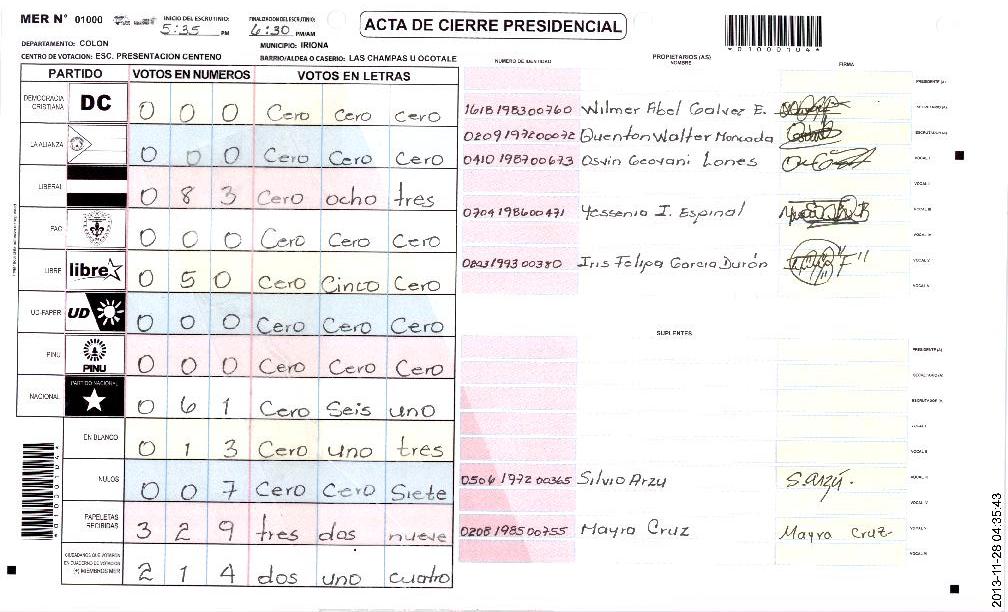 MER N° 01000
INICIO DEL ESCRUTINIO: 5:35 PM
FINALIZACION DEL ESCRUTINIO: 6:30 PM/AM
ACTA DE CIERRE PRESIDENCIAL
*01000104*
DEPARTAMENTO: COLON
MUNICIPIO: IRIONA
CENTRO DE VOTACION: ESC. PRESENTACION CENTENO
BARRIO/ALDEA O CASERIO: LAS CHAMPAS U OCOTALE
PARTIDO VOTOS EN NUMEROS VOTOS EN LETRAS
DEMOCRACIA CRISTIANA DC 0 0 0 Cero Cero cero
LA ALIANZA 0 0 0 Cero Cero Cero
LIBERAL 0 8 3 Cero ocho tres
PAC 0 0 0 Cero Cero Cero
LIBRE libre 0 5 0 Cero Cinco Cero
UD-FAPER UD 0 0 0 Cero Cero Cero
PINU PINU 0 0 0 Cero Cero Cero
NACIONAL PARTIDO NACIONAL 0 6 1 Cero Seis uno
EN BLANCO 0 1 3 Cero uno tres
NULOS 0 0 7 Cero Cero Siete
PAPELETAS RECIBIDAS 3 2 9 tres dos nueve
CIUDADANOS QUE VOTARON EN CUADERNO DE VOTACION (+) MIEMBROS MER 2 1 4 dos uno cuatro
NUMERO DE IDENTIDAD PROPIETARIOS (AS) NOMBRE FIRMA
PRESIDENTE (A)
1618198300760 Wilmer Abel Galvez E. SECRETARIO (A)
0209197200072 Quenton Walter Moncada ESCRUTADOR (A)
0410198700673 Osvin Geovani Lones VOCAL I
VOCAL II
0704198600471 Yessenia I. Espinal VOCAL III
VOCAL IV
Iris Felipa Garcia Durón VOCAL V
VOCAL VI
SUPLENTES
PRESIDENTE (A)
SECRETARIO (A)
ESCRUTADOR (A)
VOCAL I
VOCAL II
0506197200365 Silvio Arzu S. Arzú. VOCAL III
VOCAL IV
0208198500755 Mayra Cruz Mayra Cruz VOCAL V
VOCAL VI
*01000104*
2013-11-28 04:35:43